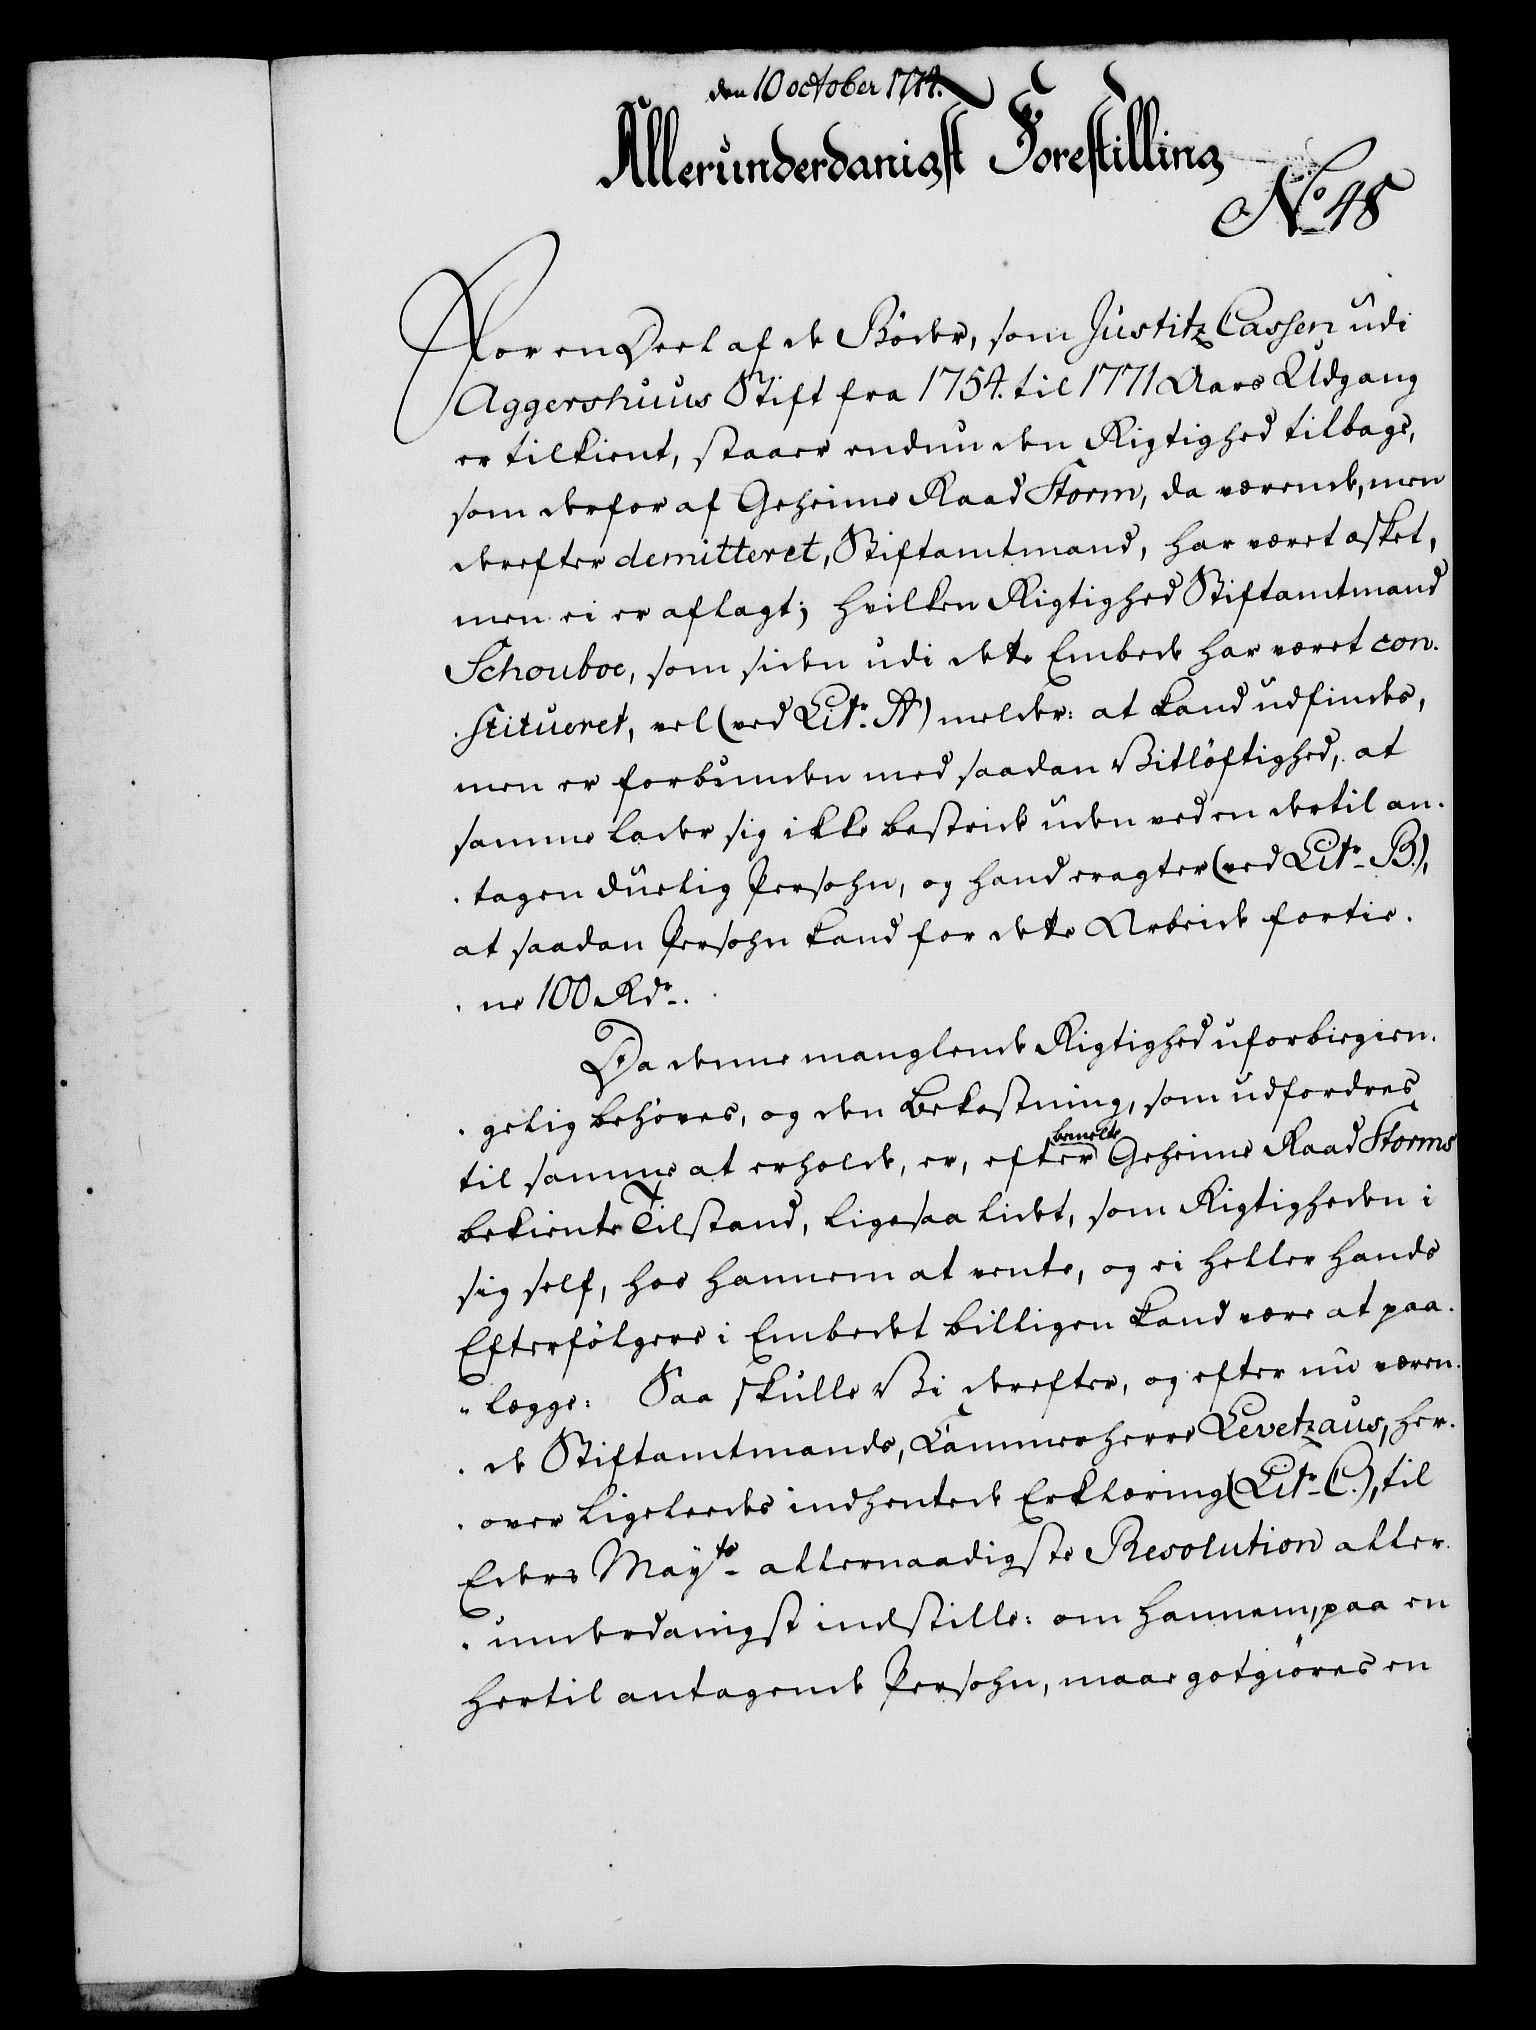 den 10 october 1774.
Allerunderdanigst Forestilling
No. 48
For en Deel af de Böder, som Justitz Cassen udi
Aggershuus Stift fra 1754. til 1771 Aars Udgang
er tilkient, staaer endnu den Rigtighed tilbage,
som derfor af Geheime Raad Storm, da værende, men
derefter demitteret, Stiftamtmand, har været æsket,
men ei er aflagt; hvilken Rigtighed Stiftamtmand
Schouboe, som siden udi dette Embede har været con-
-stitueret, vel (ved Litr. A) melder: at kand udfindes,
men er forbunden med saadan Vitlöftighed, at
samme lader sig ikke bestride uden ved en dertil an-
-tagen duelig Persohn, og hand eragter (ved Litr. B.),
at saadan Persohn kand for dette Arbeide fortie-
-ne 100 Rdr.
Da denne manglende Rigtighed uforbiegien-
-gelig behöves, og den Bekostning, som udfordres
til samme at erholde, er, efter bemelte Geheime Raad Storms
bekiente Tilstand, ligesaa lidet, som Rigtigheden i
sig self, hos hannem at vente, og ei heller hands
Efterfölgere i Embedet billigen kand være at paa-
-legge: Saa skulle Vi derefter, og efter nu væren-
-de Stiftamtmands, Cammerherre Levetzaus, her-
-over ligeleedes indhentede Erklæring (Litr. C.), til
Eders Mayts. allernaadigste Resolution aller-
-underdanigst indstille: om hannem, paa en
hertil antagende Persohn, maae gotgiöres en